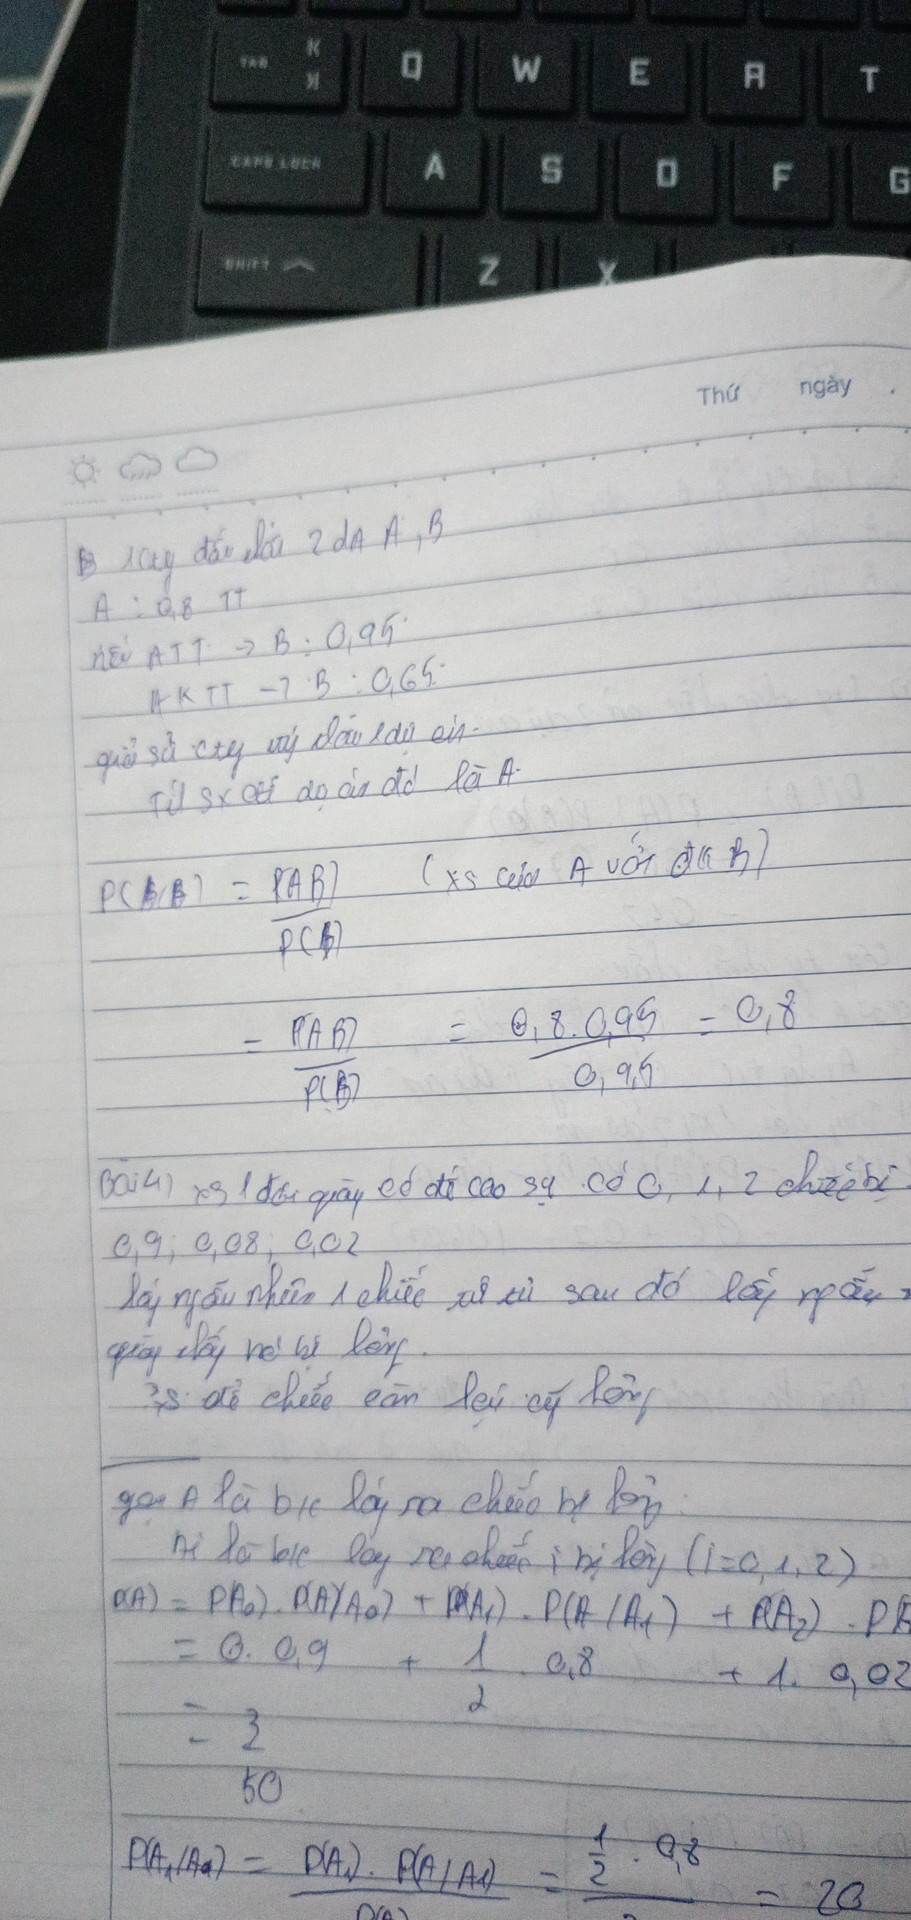 TAB K
Q W E R T
CAPS LOCK A S D F G
SHIFT Z X
Thứ ngày
1 cty đấu 2 dA A, B
A : 0,8 TT
nếu ATT → B : 0,95
AKTT → B : 0,65
giả sử cty đấu 1 dự án
dự án đó là A
P( B) = P(AB) (xs của A với đk B)
P(B)
= P(AB) = 0,8.0,95 = 0,8
P(B) 0,95
Bài 4) xs 1 đôi giày có đế cao sự có 0, 1, 2 chiếc bị
0,9; 0,08; 0,02
lấy ngẫu nhiên 1 chiếc sau đó lấy ngẫu
giày thấy nó bị lỏng.
xs để chiếc còn lại cũng lỏng
gọi A là b/c lấy ra chiếc bị lỏng
Ai là b/c lấy ra chiếc i bị lỏng (i=0,1,2)
P(A) = P(A0).P(A/A0) + P(A1).P(A/A1) + P(A2).P(A
= 0.0,9 + 1/2 . 0,8 + 1. 0,02
= 3
50
P(A1/A0) = P(A1).P(A/A1) = 1/2 . 0,8 = 20
P(A)